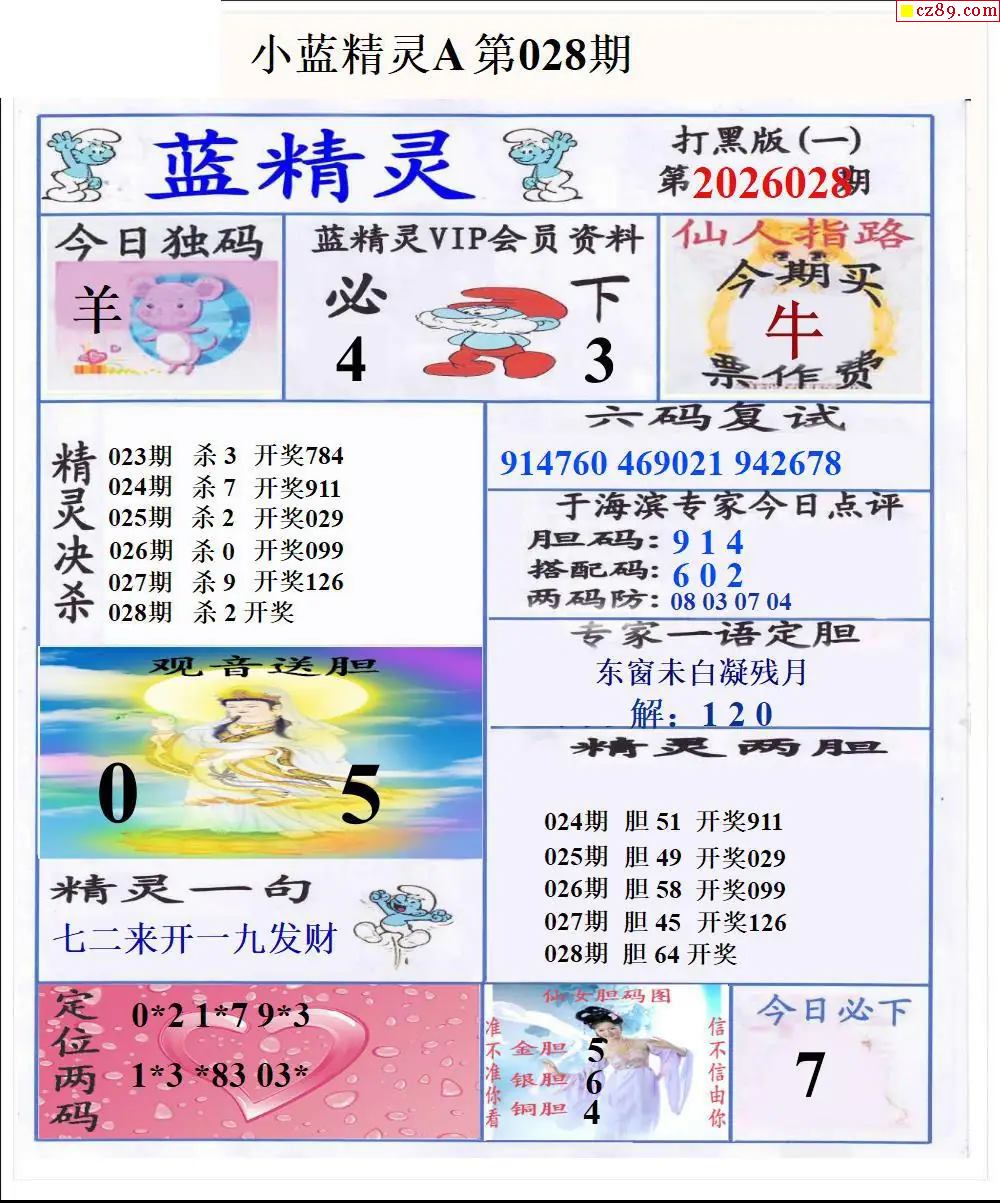 cz89.com
小蓝精灵A 第028期
蓝精灵
打黑版(一)
第2026028期
今日独码
羊
蓝精灵VIP会员资料
必 下
4 3
仙人指路
今期买
牛
票作费
精灵决杀
023期 杀 3 开奖784
024期 杀 7 开奖911
025期 杀 2 开奖029
026期 杀 0 开奖099
027期 杀 9 开奖126
028期 杀 2 开奖
六码复试
914760 469021 942678
于海滨专家今日点评
胆码: 9 1 4
搭配码: 6 0 2
两码防: 08 03 07 04
专家一语定胆
东窗未白凝残月
解: 1 2 0
观音送胆
0 5
精灵两胆
024期 胆 51 开奖911
025期 胆 49 开奖029
026期 胆 58 开奖099
027期 胆 45 开奖126
028期 胆 64 开奖
精灵一句
七二来开一九发财
定位两码
0*2 1*7 9*3
1*3 *83 03*
仙女胆码图
准不准你看
金胆 5
银胆 6
铜胆 4
信不信由你
今日必下
7